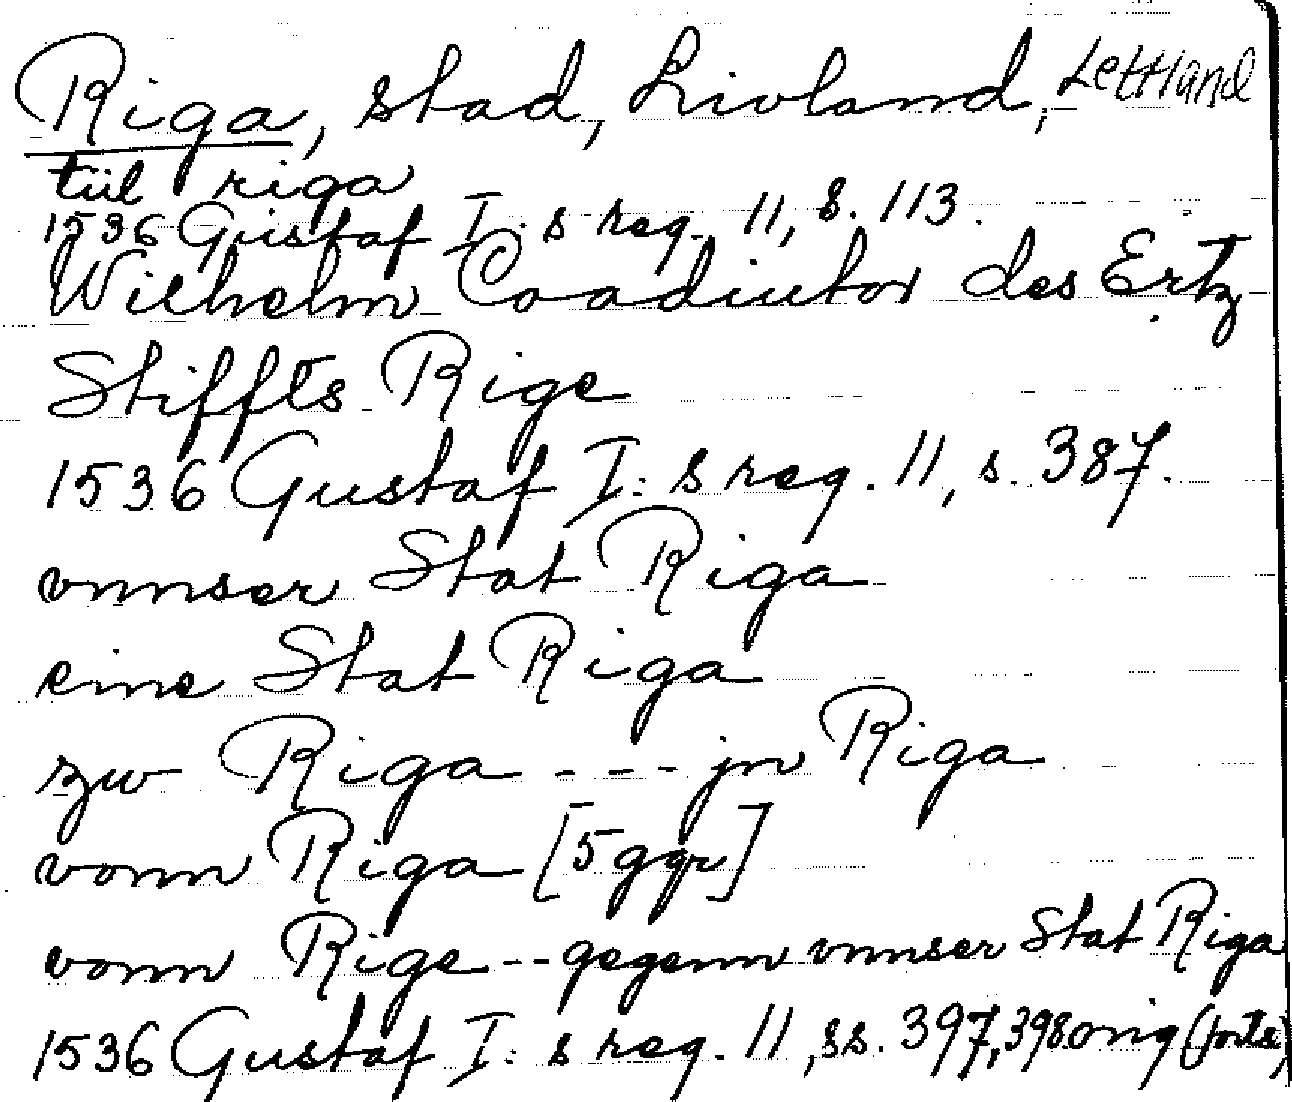 Riga, stad, Livland, Lettland
tiil riga
1536 Gustaf I:s reg. 11, s. 113.
Wilhelm Coadiutor des Ertz
Stiffts Rige
1536 Gustaf I:s reg. 11, s. 387.
vnnser Stat Riga
eine Stat Riga
zw Riga --- jn Riga
vonn Riga [5 ggr]
vonn Rige -- gegenn vnnser Stat Riga
1536 Gustaf I:s reg. 11, ss. 397, 398 orig (forts)